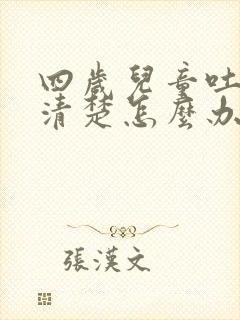 四歲兒童吐
清楚怎麼办
張漢文